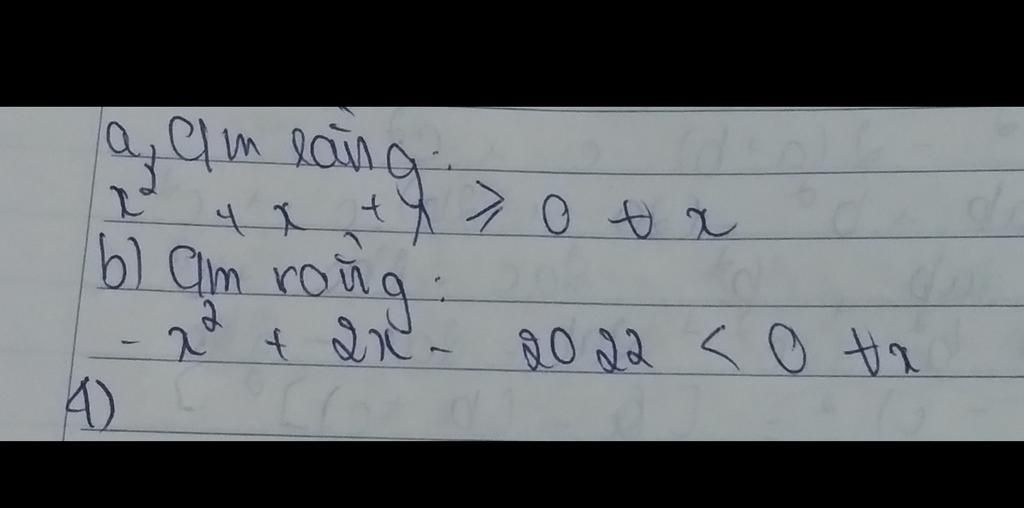 a, Cm rằng:
x² + x + 1 ≥ 0 ∀ x
b) Cm rằng:
- x² + 2x - 2022 < 0 ∀x
4)